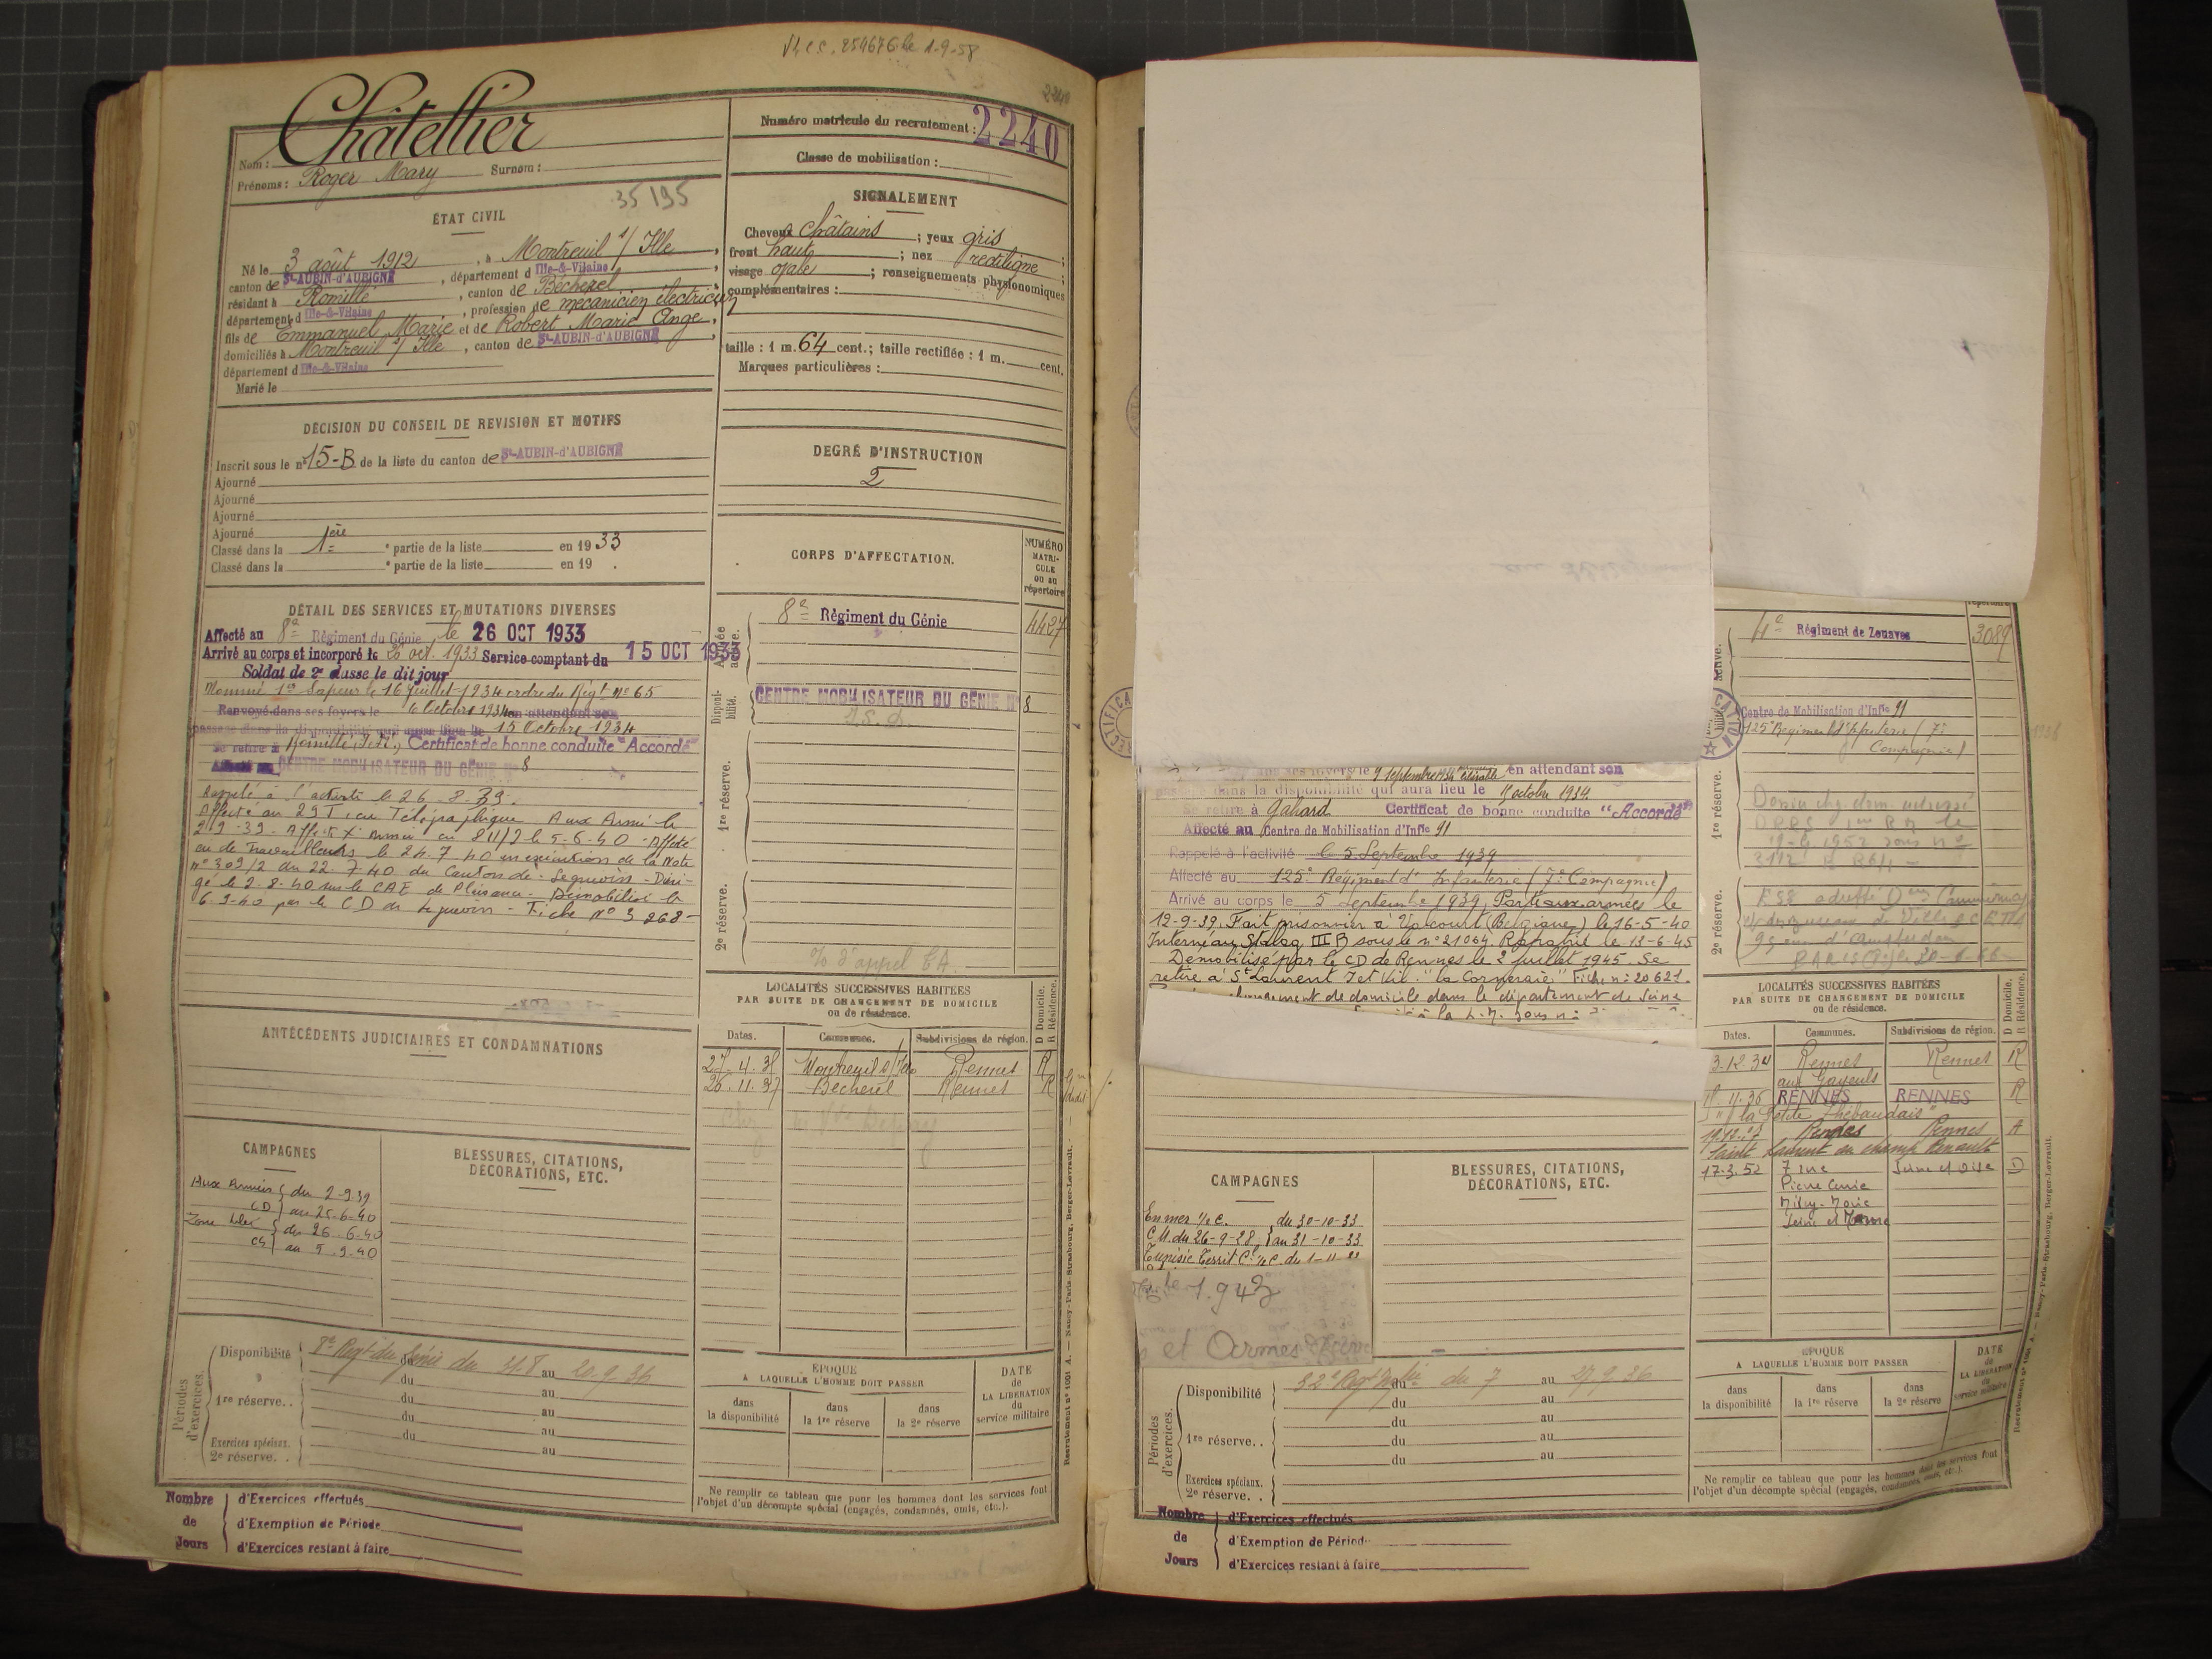 2240
Nom : Châtellier
Prénoms : Roger Mary Surnom :
Numéro matricule du recrutement : 2240
Classe de mobilisation :
35195
ÉTAT CIVIL
Né le 3 août 1912, à Montreuil s/ Ille,
canton de St-AUBIN-d'AUBIGNÉ, département d Ille-&-Vilaine,
résidant à Romillé, canton de Bécherel
département d Ille-&-Vilaine, profession de mécanicien électricien
fils de Emmanuel Marie et de Robert Marie Ange,
domiciliés à Montreuil s/ Ille, canton de St-AUBIN-d'AUBIGNÉ,
département d Ille-&-Vilaine
Marié le
SIGNALEMENT
Cheveux châtains ; yeux gris ;
front haut ; nez rectiligne ;
visage ovale ; renseignements physionomiques
complémentaires :
taille : 1 m. 64 cent.; taille rectifiée : 1 m. cent.
Marques particulières :
DÉCISION DU CONSEIL DE REVISION ET MOTIFS
Inscrit sous le n° 15-B de la liste du canton de St-AUBIN-d'AUBIGNÉ
Ajourné
Ajourné
Ajourné
Ajourné
Classé dans la 1ère partie de la liste en 1933
Classé dans la partie de la liste en 19 .
DEGRÉ D'INSTRUCTION
2
DÉTAIL DES SERVICES ET MUTATIONS DIVERSES
Affecté au 8e Régiment du Génie, le 26 OCT 1933
Arrivé au corps et incorporé le 26 oct. 1933 Service comptant du 15 OCT 1933
Soldat de 2e classe le dit jour
Nommé 1er Sapeur le 16 juillet 1934 ordre du Régt. N° 65
Renvoyé dans ses foyers le 6 Octobre 1934 en attendant son
passage dans la disponibilité qui aura lieu le 15 Octobre 1934
Se retire à Romillé, I.etV., Certificat de bonne conduite "Accordé"
Affecté au CENTRE MOBILISATEUR DU GÉNIE N° 8
Rappelé à l'activité le 26.8.39.
Affecté au 29 T. Télégraphique Aux Armées le
2-9-39. Affecté X Armée 811/2 le 5-6-40 - Affecté
de Travailleurs le 24.7.40 en exécution de la Note
n° 309/2 du 22.7.40 du Canton de Leguevin - Diri-
gé le 2-8-40 sur le CAE de Plaisance - Démobilisé le
6-9-40 par le CD de Leguevin - Fiche N° 3268 -
CORPS D'AFFECTATION.
NUMÉRO MATRI-CULE ou au répertoire
Armée active.
8e Régiment du Génie 4427
Disponi-bilité.
CENTRE MOBILISATEUR DU GÉNIE N° 8
1re réserve.
2e réserve.
ANTÉCÉDENTS JUDICIAIRES ET CONDAMNATIONS
LOCALITÉS SUCCESSIVES HABITÉES
PAR SUITE DE CHANGEMENT DE DOMICILE
ou de résidence.
D Domicile. R Résidence.
Dates. Communes. Subdivisions de région.
27.4.35 Montreuil s/Ille Rennes R
26.11.37 Bécherel Rennes R
CAMPAGNES
Aux Armées du 2-9-39
CD au 25-6-40
Zone libre du 26-6-40
CS au 5.9.40
BLESSURES, CITATIONS,
DÉCORATIONS, ETC.
Périodes d'exercices.
Disponibilité 8e Regt du Génie du 31.8 au 20.9.36
du au
1re réserve.. du au
du au
Exercices spéciaux. du au
2e réserve. .
ÉPOQUE
A LAQUELLE L'HOMME DOIT PASSER
dans la disponibilité
dans la 1re réserve
dans la 2e réserve
DATE de LA LIBÉRATION du service militaire
Ne remplir ce tableau que pour les hommes dont les services font
l'objet d'un décompte spécial (engagés, condamnés, omis, etc.).
Nombre de Jours
d'Exercices effectués
d'Exemption de Période
d'Exercices restant à faire
Recrutement n° 1001 A. — Nancy-Paris-Strasbourg, Berger-Levrault.
ses foyers le 9 septembre 1934 en attendant son
passage dans la disponibilité qui aura lieu le octobre 1934.
Se retire à Gahard Certificat de bonne conduite "Accordé"
Affecté au Centre de Mobilisation d'Inf'ie 91
Rappelé à l'activité le 5 Septembre 1939
Affecté au 125e Régiment d'Infanterie (7e Compagnie)
Arrivé au corps le 5 septembre 1939, Parti aux armées le
12-9-39. Fait prisonnier à (Belgique) le 16-5-40
Interné au Stalag III B sous le n° 21064. Rapatrié le 13-6-45
Démobilisé par le CD de Rennes le 2 juillet 1945. Se
retire à St Laurent I et Vil. "la Cormeraie" Fiche n° 20621.
changement de domicile dans le département de Seine
4e Régiment de Zouaves 3089
Centre de Mobilisation d'Inf'ie 91
125e Régiment d'Infanterie (7e
Compagnie)
1re réserve.
2e réserve.
LOCALITÉS SUCCESSIVES HABITÉES
PAR SUITE DE CHANGEMENT DE DOMICILE
ou de résidence.
D Domicile. R Résidence.
Dates. Communes. Subdivisions de région.
3.12.34 Rennes Rennes R
aux Gayeuls
11.36 RENNES RENNES R
"la Petite Thébaudais"
Rennes Rennes
Saint Laurent du champ Renault
17.3.52 7 rue Seine et Oise D
Pierre Curie
Mitry-Mory
Seine et Marne
CAMPAGNES
En mer 1/2 C. du 30-10-33
C.M. du 26-9-28 au 31-10-33
Tunisie Territ
1.943
et Armes
BLESSURES, CITATIONS,
DÉCORATIONS, ETC.
Périodes d'exercices.
Disponibilité 32e Regt du 7 au 27.9.36
du au
du au
1re réserve.. du au
du au
Exercices spéciaux.
2e réserve. .
ÉPOQUE
A LAQUELLE L'HOMME DOIT PASSER
dans la disponibilité
dans la 1re réserve
dans la 2e réserve
DATE de LA LIBÉRATION du service militaire
Ne remplir ce tableau que pour les hommes dont les services font
l'objet d'un décompte spécial (engagés, condamnés, omis, etc.).
Nombre de Jours
d'Exercices effectués
d'Exemption de Périod
d'Exercices restant à faire